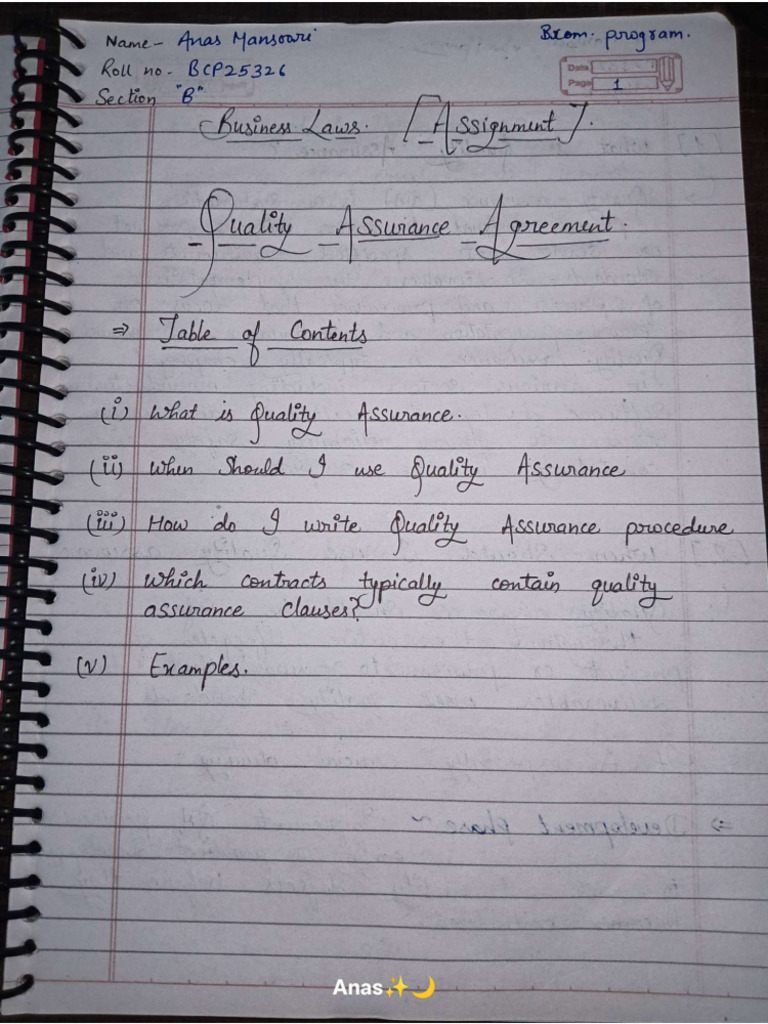 Name - Anas Mansoori Bcom. program.
Roll no - BCP25326
Date
Page 1
Section "B"
Business Laws. [Assignment].
Quality Assurance Agreement.
⇒ Table of Contents
(i) What is Quality Assurance.
(ii) When Should I use Quality Assurance
(iii) How do I write Quality Assurance procedure
(iv) Which contracts typically contain quality
assurance clauses?
(v) Examples.
Anas✨🌙